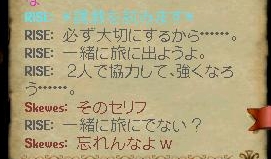 な
RISE: 必ず大切にするから‥‥‥。
RISE: 一緒に旅に出ようよ。
RISE: 2人で協力して、強くなろ
う‥‥‥。
Skewes: そのセリフ
RISE: 一緒に旅にでない？
Skewes: 忘れんなよｗ